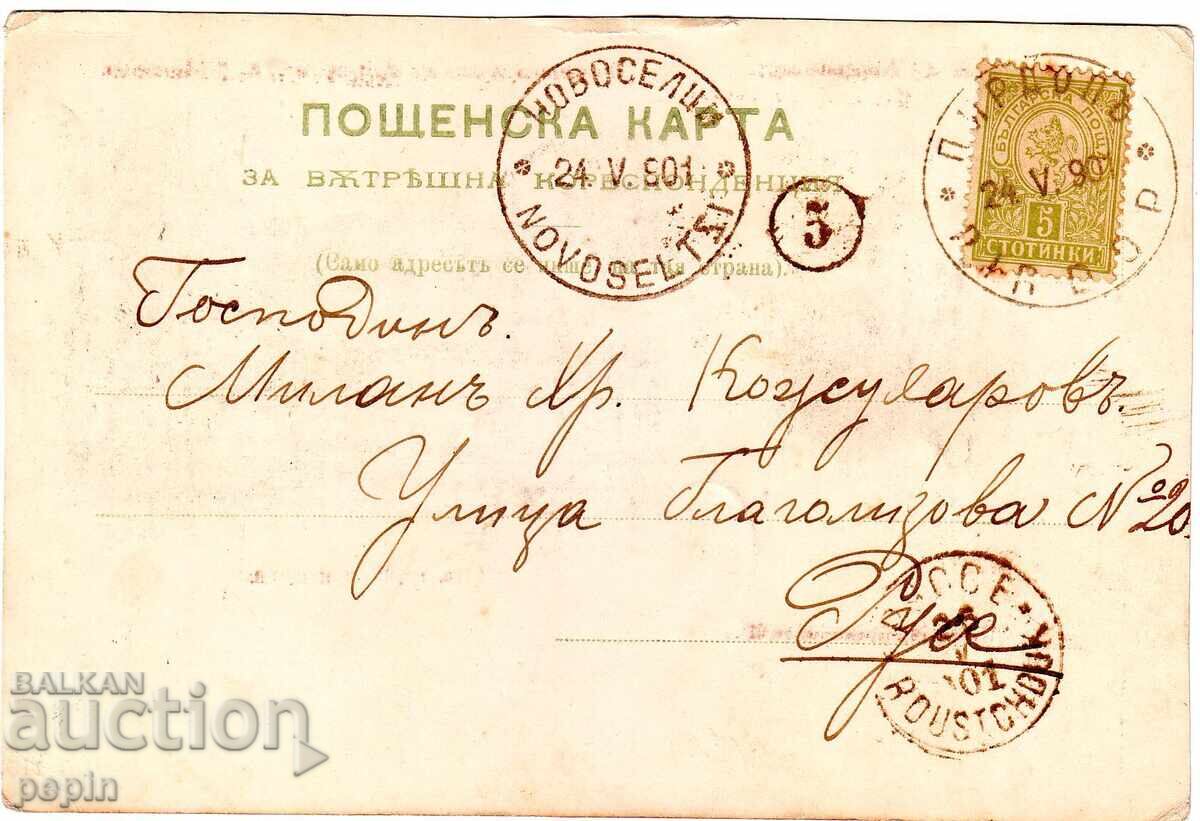 ПОЩЕНСКА КАРТА
ЗА ВѪТРѢШНА КОРЕСПОНДЕНЦИЯ
(Само адресътъ се пише страна).
НОВОСЕЛЦИ
24 V. 901
NOVOSELTSI
5
ПИРДОПЪ
24. V. 90
PIRDOP
БЪЛГАРСКА ПОЩА
5
СТОТИНКИ
Господинъ.
Миланъ Хр. Кожухаровъ.
Улица № 20
Русе
РУССЕ
V
901
ROUSTCHOUK
BALKAN
auction
pepin